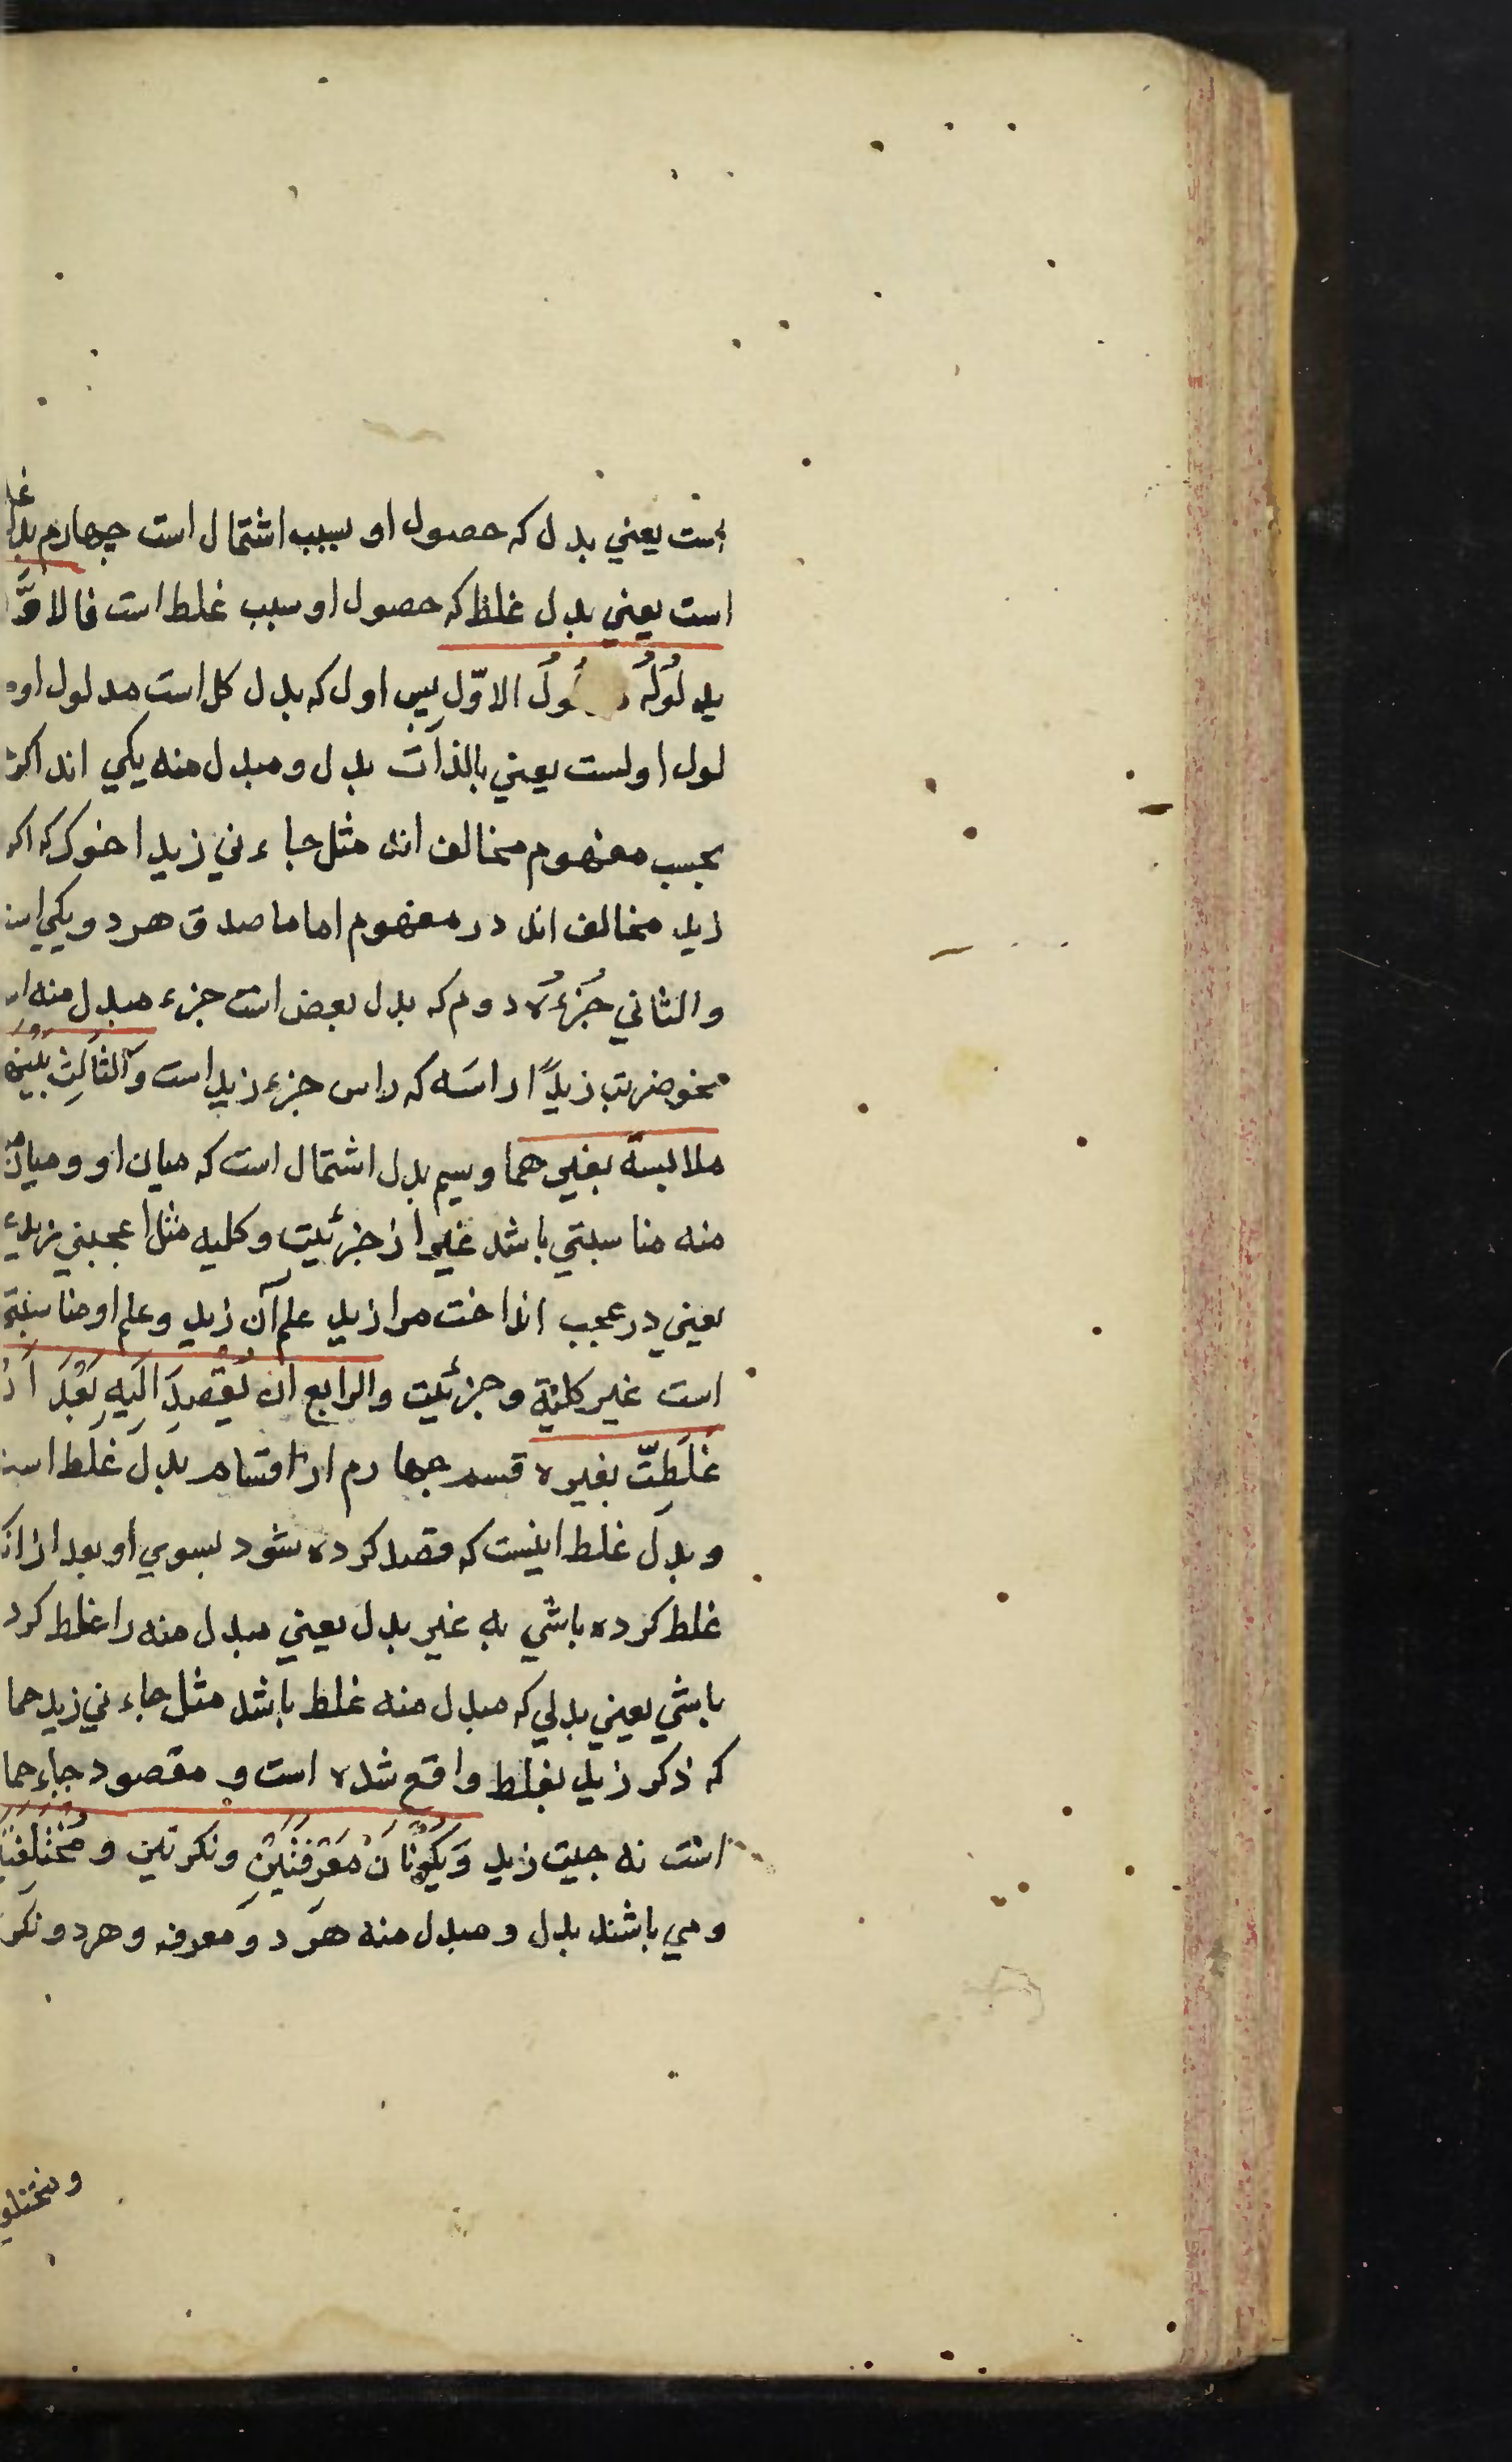 است يعني بدل كه حصول او بسبب اشتمال است چهارم بدل
است يعني بدل غلط كه حصول او سبب غلط است فالاوّ
يدلُولُه الاوّل پس اول كه بدل كل است مدلول او
لول اولست يعني بالذات بدل و مبدل منه يكي اند اكر
بحسب مفهوم مخالف اند مثل جاءني زيد اخوك كه اكر
زيد مخالف اند در مفهوم اما ما صدق هر دو يكي است
والثاني جُزءُه دوم كه بدل بعض است جزء مبدل منه
نحو ضربت زيدًا راسَه كه راس جزء زيد است والثالث بَيْنَه
ملابسة بغيرهما وسيم بدل اشتمال است كه ميان او و ميان
منه مناسبتي باشد غير از جزئيت و كليه مثل اعجبني زيد
يعني در عجب انداخت مرا زيد علم آن زيد و علم او مناسبة
است غير كلية و جزئيت والرابع ان يُقْصَدَ اِلَيهِ بَعْدَ اَنْ
غَلَطتَّ بغيره قسم چهارم از اقسام بدل غلط است
و بدل غلط اينست كه قصد كرده شود بسوي او بعد از انك
غلط كرده باشي به غير بدل يعني مبدل منه را غلط كرد
باشي يعني بدلي كه مبدل منه غلط باشد مثل جاءني زيد حما
كه ذكر زيد بغلط واقع شده است و مقصود جاء حما
است نه جيت زيد وَيَكُونَانِ مَعْرِفَتَيْنِ ونكرتين و مُخْتَلِفَيْ
و مي باشند بدل و مبدل منه هر دو معرفه و هر دو نكر
ومختلف